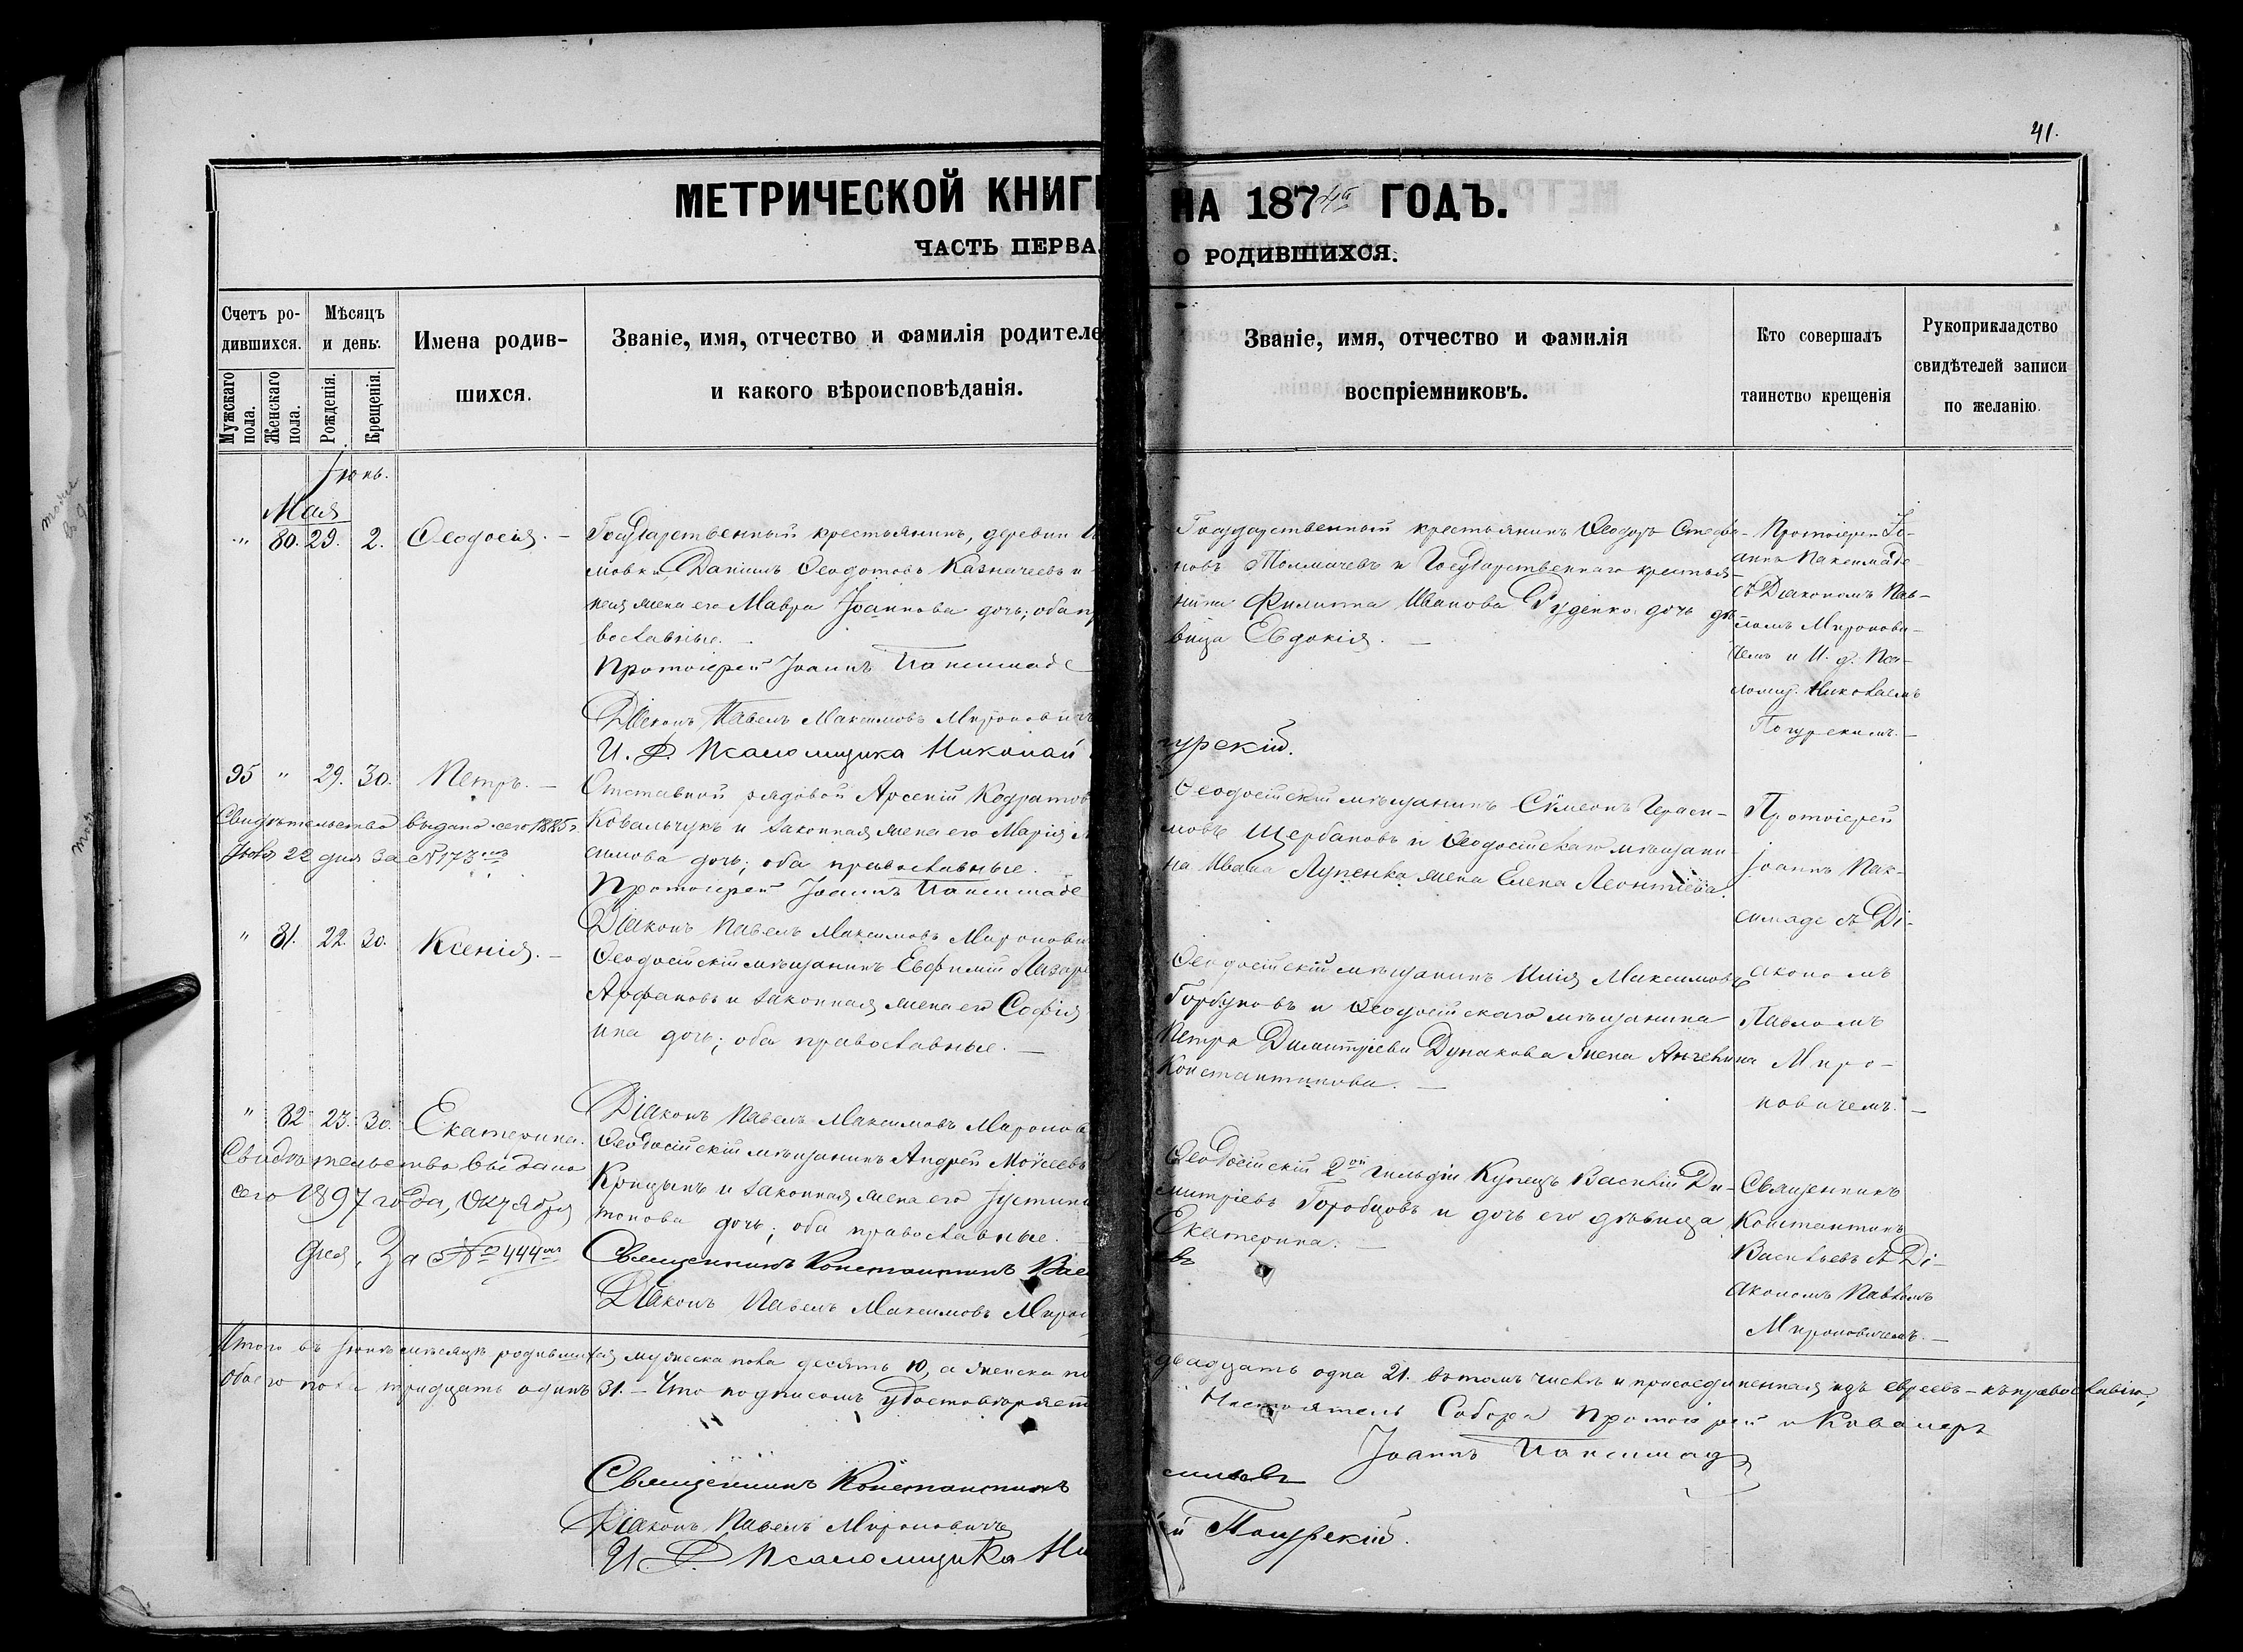 41.
МЕТРИЧЕСКОЙ КНИГ
НА 1874й ГОДЪ.
ЧАСТЬ ПЕРВА
О РОДИВШИХСЯ.
Счетъ ро-
дившихся.
Мужскаго пола.
Женскаго пола.
Мѣсяцъ
и день.
Рожденія.
Крещенія.
Имена родив-
шихся.
Званіе, имя, отчество и фамилія родителе
и какого вѣроисповѣданія.
Званіе, имя, отчество и фамилія
воспріемниковъ.
Кто совершалъ
таинство крещенія
Рукоприкладство
свидѣтелей записи
по желанію.
Іюнь.
Мая
" 80. 29. 2. Ѳеодосія. –
Государственный крестьянинъ, деревни
мовки, Даніилъ Ѳеодотовъ Казначеевъ и
ная жена его Мавра Іоаннова дочь; оба пр
вославные. –
Протоіерей Іоаннъ Паксимаде
Діаконъ Павелъ Максимовъ Мироновичъ
И. Д. Псаломщика Николай
Государственный крестьянинъ Ѳеодоръ Стефа-
новъ Толмачевъ и Государственнаго крестья-
нина Филиппа Иванова Руденко дочь дѣ-
вица Евдокія. –
гурскій.
Протоіерей Іо-
аннъ Паксимаде
съ Діакономъ Пав-
ломъ Миронови-
чемъ и И. д. Пса-
ломщ. Николаемъ
Погурскимъ. –
95 " 29. 30. Петръ. –
Свидѣтельство выдано сего 1885 г
22 дня за №173мъ
Отставной рядовой Арсеній Кодратов
Ковальчукъ и законная жена его Марія
симова дочь; оба православные.
Протоіерей Іоаннъ Паксимаде
Діаконъ Павелъ Максимовъ Миронови
Ѳеодосійскій мѣщанинъ Сѵмеонъ Гераси-
мовъ Щербаковъ и Ѳеодосійскаго мѣщани-
на Ивана Луценка жена Елена Леонтіева.
Протоіерей
Іоаннъ Пак-
симаде съ Ді-
акономъ
Павломъ
Миро-
новичемъ. –
" 81. 22. 30. Ксенія. –
Ѳеодосійскій мѣщанинъ Евфимій Лазар
законная жена его Софія
ина дочь; оба православные. –
Діаконъ Павелъ Максимовъ Миронов
Ѳеодосійскій мѣщанинъ Илія Максимовъ
Горбуновъ и Ѳеодосійскаго мѣщанина
Петра Димитріева Дунакова жена Ангелина
Константинова. –
" 82 23. 30. Екатерина.
Свидѣтельство выдано
сего 1897 года, Октября
дня, За №444мъ
Ѳеодосійскій мѣщанинъ Андрей Моѵсеевъ
и законная жена его Іустина
тонова дочь; оба православные. –
Священникъ Константинъ Вас
Діаконъ Павелъ Максимовъ Миро
Ѳеодосійскій 2ой гильдіи Купецъ Василій Ди-
митріевъ Горобцовъ и дочь его дѣвица
Екатерина. –
въ
Священникъ
Константинъ
Васильевъ съ Ді-
акономъ Павломъ
Мироновичемъ. –
Итого въ Іюнѣ мѣсяцѣ родившихся мужеска пола десять 10, а женска по
двадцать одна 21. въ томъ числѣ и присоединенная изъ евреевъ – къ православію,
обоего пола тридцать одинъ 31. – Что подписомъ удостовѣряет
Настоятель Собора Протоіерей и Кавалеръ
Іоаннъ Паксимад
Священникъ Константинъ
сильевъ
Діаконъ Павелъ Мироновичъ
И. Д. Псаломщика Ни
й Погурскій.